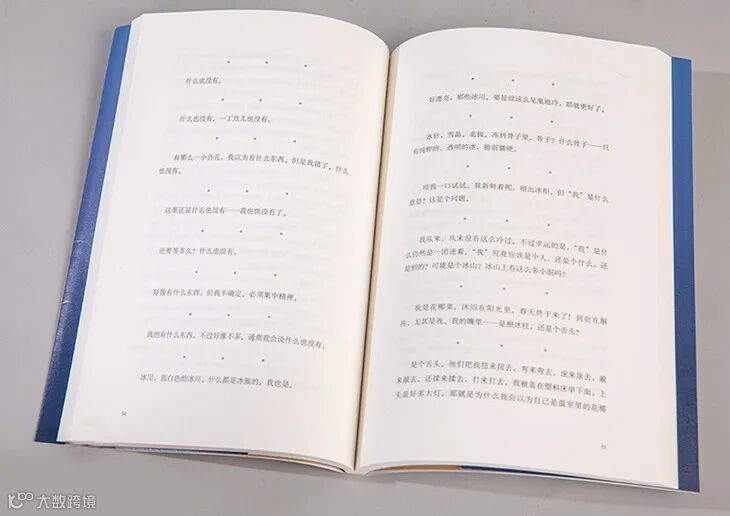 什么也没有。
* * *
什么也没有。一丁点儿也没有。
* * *
有那么一小会儿，我以为有什么东西，但是我错了。什么
也没有。
* * *
这里还是什么也没有——我也快没有了。
* * *
还要等多久？什么也没有。
* * *
好像有什么东西，但我不确定。必须集中精神。
* * *
真的有什么东西，不过好像不多。通常我会说什么也没有。
* * *
冰川，蓝白色的冰川。什么都是冰做的。我也是。
54
* * *
好漂亮，那些冰川。要是没这么见鬼地冷，那就更好了。
* * *
冰针，雪晶。北极。冻到骨子里。骨子？什么骨子——只
有纯粹的、透明的冰，脆弱僵硬。
* * *
咬我一口试试，我新鲜着呢，刚出冰柜，但“我”是什么
意思？这是个问题。
* * *
我从来、从来没有这么冷过。不过幸运的是，“我”是什
么仍然是一团迷雾。“我”究竟应该是个人，还是个什么，还
是别的？可能是个冰山？冰山上有这么多小洞吗？
* * *
我是花椰菜，沐浴在阳光里。春天终于来了！到处在解
冻，尤其是我。我的嘴里——是根冰柱，还是个舌头？
* * *
是个舌头。他们把我扭来扭去，弯来弯去，滚来滚去，敲
来敲去，还揉来揉去，打来打去。我被盖在塑料床单下面，上
头是好多大灯。那就是为什么我会以为自己是温室里的花椰
55
大数跨境